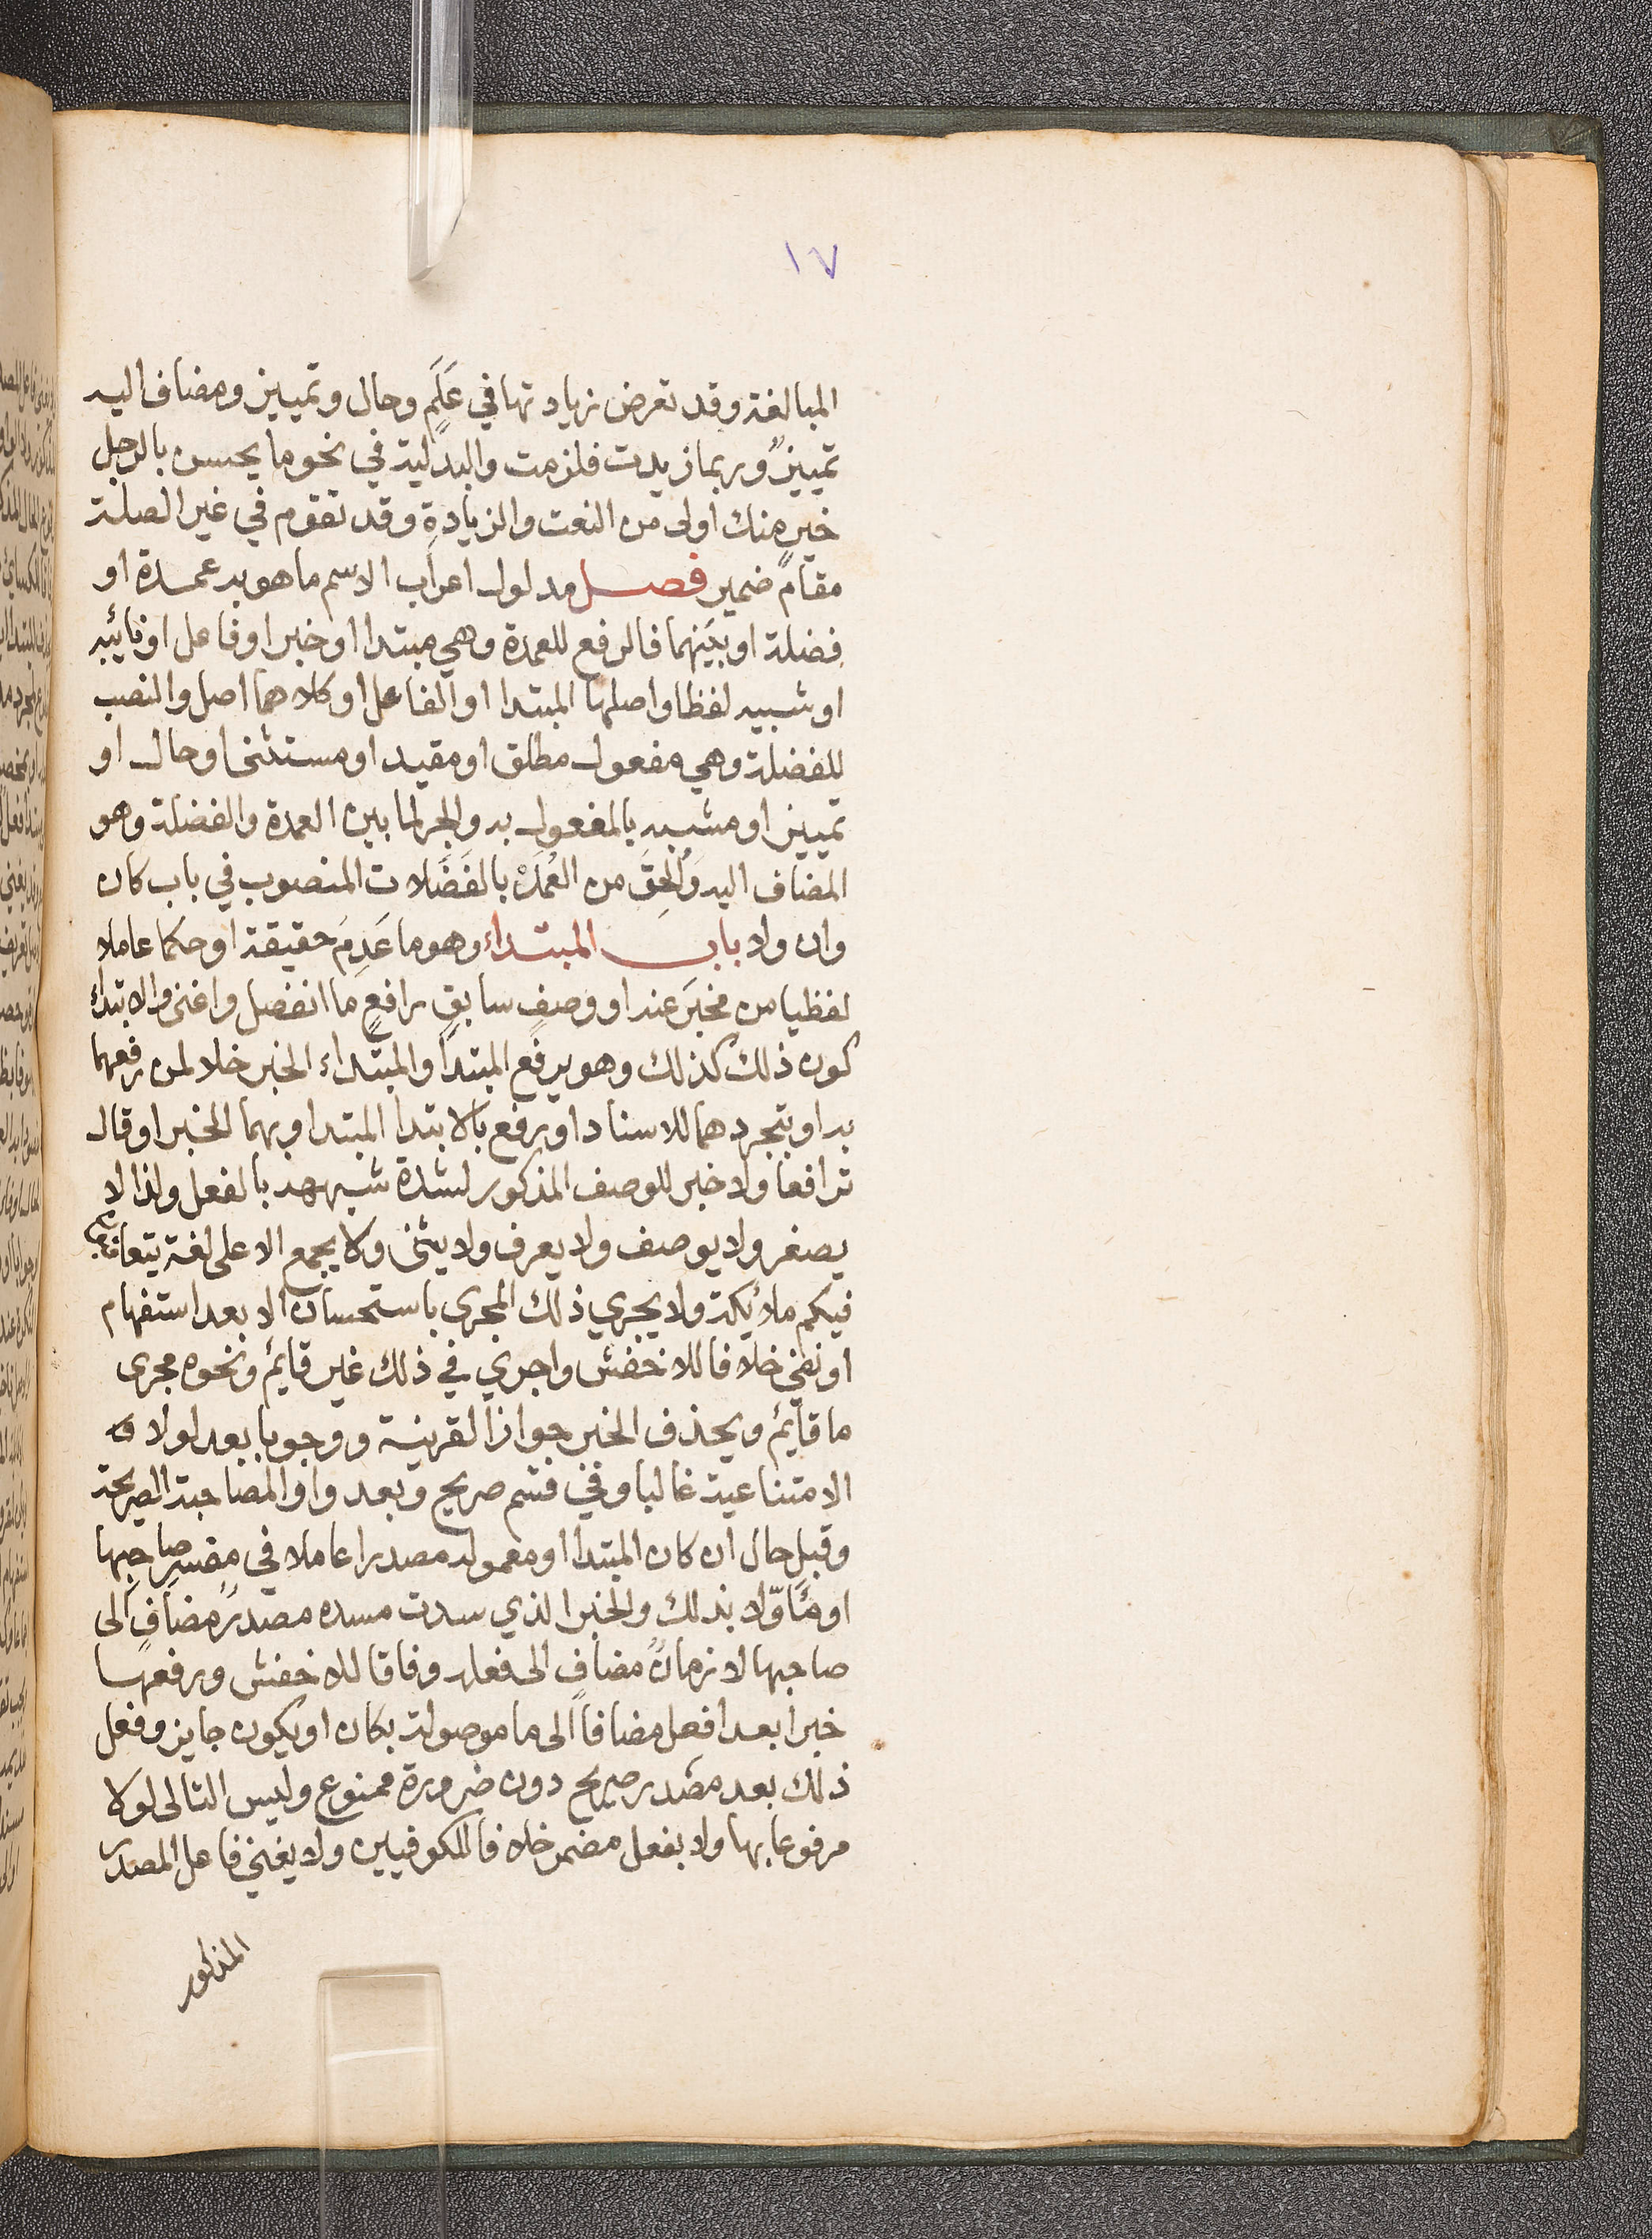 ١٧
المبالغة وقد تعرض زيادتها في عَلَمٍ وحال وتمييز ومضاف اليه
تمييزٌ وربما زيدت فلزمت والبدلية في نحو ما يحسن بالرجل
خيرٍ منك اولى من النعت والزيادةِ وقد تقوم في غير الصلة
مقامَ ضمير فصل مدلول اعراب الاسم ما هو به عمدة او
فضلة او بينهما فالرفع للعمدة وهي مبتدا او خبر او فاعل او نائبه
او شبيه لفظا واصلها المبتدا او الفاعل او كلاهما اصل والنصب
للفضلة وهي مفعول مطلق او مقيد او مستثنى او حال او
تمييز او مشبه بالمفعول به والجر لما بين العمدة والفضلة وهو
المضاف اليه وَأُلْحِقَ من العُمَدْ بالفَضَلات المنصوب في باب كان
وان ولا باب المبتداء وهو ما عَدِمَ حقيقة او حكما عاملا
لفظيا من مخبَرَ عنه او وصفٍ سابقٍ رافعٍ ما انفصل واغنى والابتداء
كون ذلك كذلك وهو يرفع المبتدأ والمبتداء الخبر خلا لمن رفعهما
به او بتجردهما للاسناد او رفع بالابتدا المبتدا وبهما الخبر او قال
ترافعا ولا خبر للوصف المذكور لشدة شبهه بالفعل ولذا لا
يصغر ولا يوصف ولا يعرف ولا يثنى ولا يجمع الا على لغة يتعاقبون
فيكم ملائكة ولا يجري ذلك المجرى باستحسان الا بعد استفهام
او نفي خلافا للاخفش واجري في ذلك غير قائم ونحوه مجرى
ما قائم ويحذف الخبر جوازا لقرينة ووجوبا بعد لولا
الامتناعية غالبا وفي قسم صريح وبعد واو المصاحبة الصريحة
وقبل حال ان كان المبتدا او معموله مصدرا عاملا في مفسرِ صاحبها
او مئَاوّلا بذلك والخبر الذي سدت مسده مصدرٌ مضافٍ الى
صاحبها لا زمانٌ مضافٍ الى فعله وفاقا للاخفش ورفعها
خبرا بعد افعل مضافا الى ما موصولة بكان او يكون جايز وفعل
ذلك بعد مصدر صريح دون ضرورة ممنوع وليس التالى لولا
مرفوعا بها ولا بفعل مضمر خلافا للكوفيين ولا يغني فاعل المصدر
المذكور